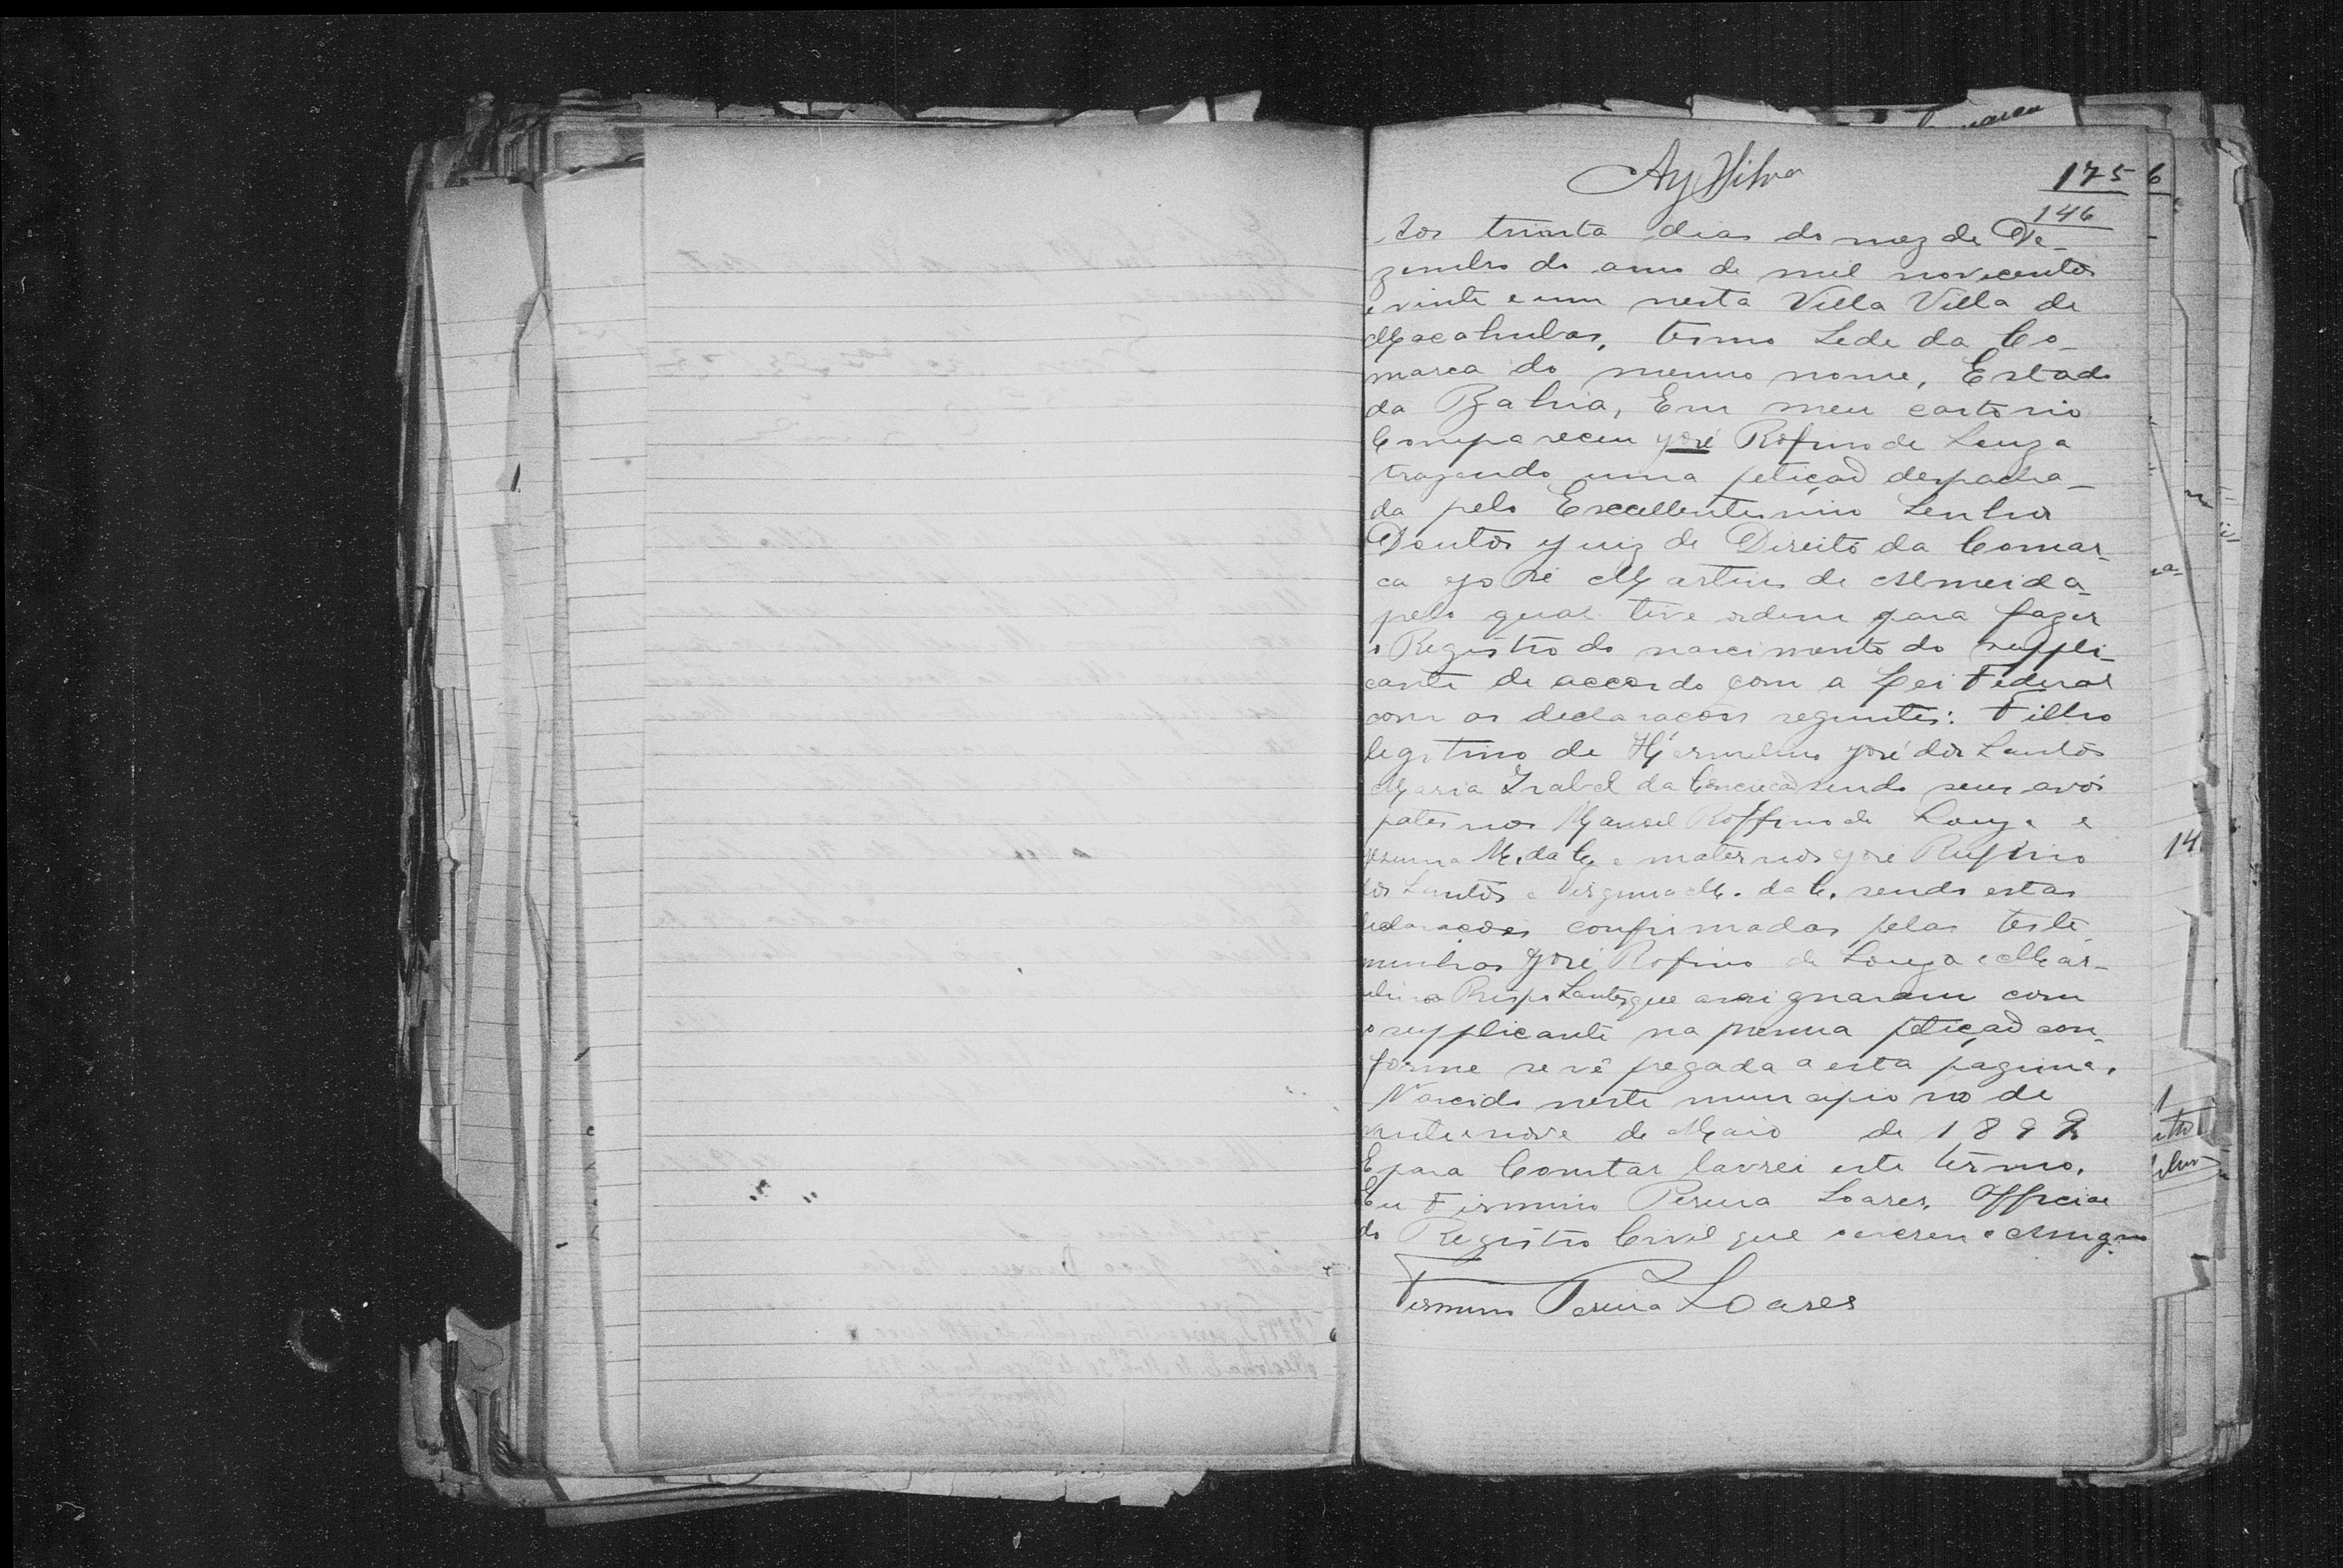 Ay Silva
175
6
146
Aos trinta dias do mez de De-
zembro do anno de mil novecentos
e vinte e um nesta Villa Villa de
Macahubas, termo Sede da Co-
marca do mesmo nome, Estado
da Bahia, Em meu cartorio
Compareceu José Rofino de Souza
trazendo uma petição despacha-
da pelo Excellentissimo Senhor
Doutor Juiz de Direito da Comar-
ca José Martins de Almeida
pelo qual tive ordem para fazer
o Registro do nascimento do suppli-
cante de accordo com a Lei Federal
com as declarações seguintes: Filho
legitimo de José dos Santos
Maria Izabel da Conceicão sendo seus avós
paternos Manoel Roffino de Souza e
M. da C. e maternos José Rufino
dos Santos e Virginia M. da C. sendo estas
declarações confirmadas pelas teste-
munhas José Rofino de Souza e Mar-
Santos que assignaram com
o supplicante na mesma petição con-
forme se vê pregada a esta pagina.
Nascido neste municipio no de
vinte e nove de Maio de 189
E para Constar lavrei este termo.
Eu Firmino Pereira Soares, Official
do Registro Civil que escrevi e assigno
Firmino Pereira Soares
14